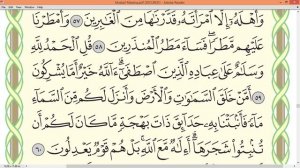 وَأَهْلَهُۥٓ إِلَّا ٱمْرَأَتَهُۥ قَدَّرْنَٰهَا مِنَ ٱلْغَٰبِرِينَ ٥٧ وَأَمْطَرْنَا
عَلَيْهِم مَّطَرًا ۖ فَسَآءَ مَطَرُ ٱلْمُنذَرِينَ ٥٨ قُلِ ٱلْحَمْدُ لِلَّهِ
وَسَلَٰمٌ عَلَىٰ عِبَادِهِ ٱلَّذِينَ ٱصْطَفَىٰٓ ۗ ءَآللَّهُ خَيْرٌ أَمَّا يُشْرِكُونَ
٥٩ أَمَّنْ خَلَقَ ٱلسَّمَٰوَٰتِ وَٱلْأَرْضَ وَأَنزَلَ لَكُم مِّنَ ٱلسَّمَآءِ
مَآءً فَأَنۢبَتْنَا بِهِۦ حَدَآئِقَ ذَاتَ بَهْجَةٍ مَّا كَانَ لَكُمْ أَن
تُنۢبِتُوا۟ شَجَرَهَآ ۗ أَءِلَٰهٌ مَّعَ ٱللَّهِ ۚ بَلْ هُمْ قَوْمٌ يَعْدِلُونَ ٦٠